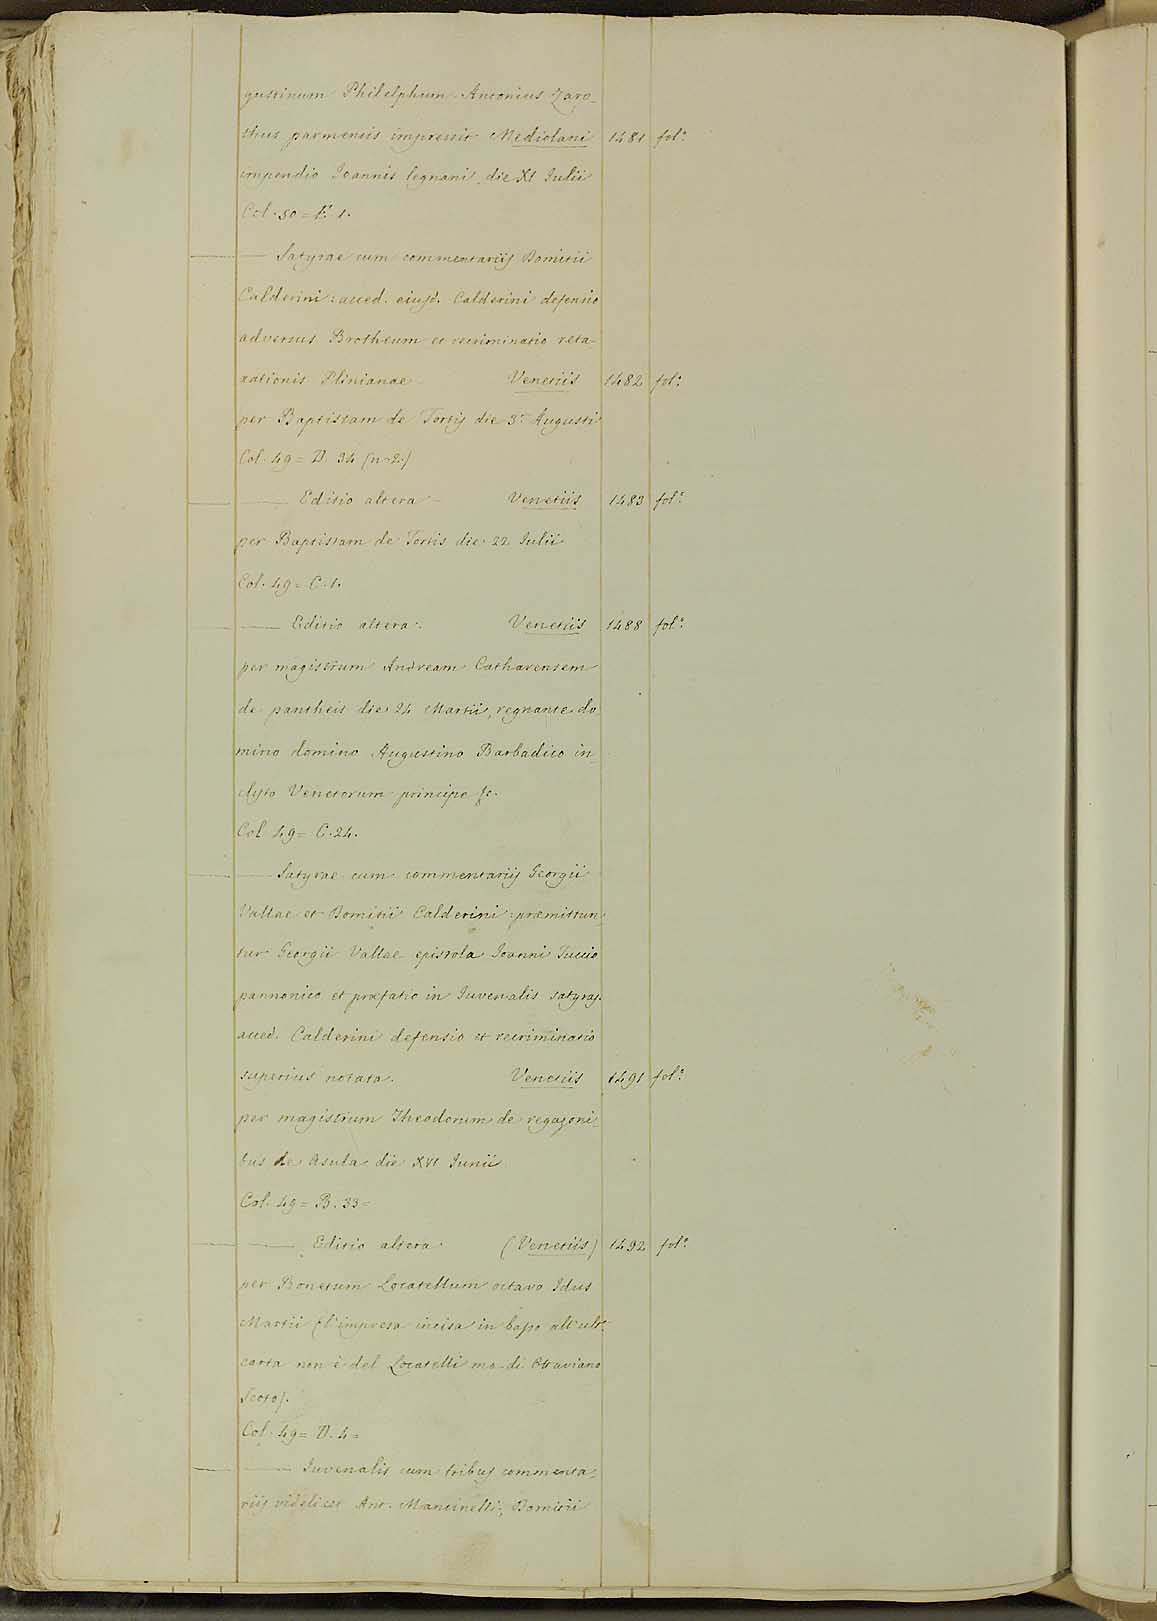 gustinum Philelphum. Antonius Zaro-
thus parmensis impressit Mediolani 1481 fol.º
impendio Joannis legnani die XI Julii
Col. 50 = E. 1.
— Satyrae cum commentariis Domitii
Calderini: acced. eiusd. Calderini defensio
adversus Brotheum et recriminatio reta-
xationis Plinianae Venetiis 1482 fol.º
per Baptistam de Tortis die 3.ª Augusti
Col. 49 = D. 34 (n. 2.)
— Editio altera — Venetiis 1483 fol.º
per Baptistam de Tortis die 22 Julii
Col. 49 = C. 1.
— Editio altera. Venetiis 1488 fol.º
per magistrum Andream Catharensem
de pantheis die 24 Martii, regnante do-
mino domino Augustino Barbadico in-
clyto Venetorum principe &c.
Col 49 = C. 24.
— Satyrae cum commentariis Georgii
Vallae et Domitii Calderini: præmittun-
tur Georgii Vallae epistola Joanni Tuccio
pannonico et præfatio in Juvenalis satyras.
acced. Calderini defensio et recriminatio
superius notata. Venetiis 1491 fol.º
per magistrum Theodorum de regazoni-
bus de Asula die XVI Junii
Col. 49 = B. 33 =
— Editio altera (Venetiis) 1492 fol.º
per Bonetum Locatellum octavo Idus
Martii (l'impresa incisa in basso all'ult.
carta non è del Locatelli ma di Ottaviano
Scoto).
Col. 49 = D. 4 =
— Juvenalis cum tribus commenta-
riis videlicet Ant. Mancinelli, Domitii